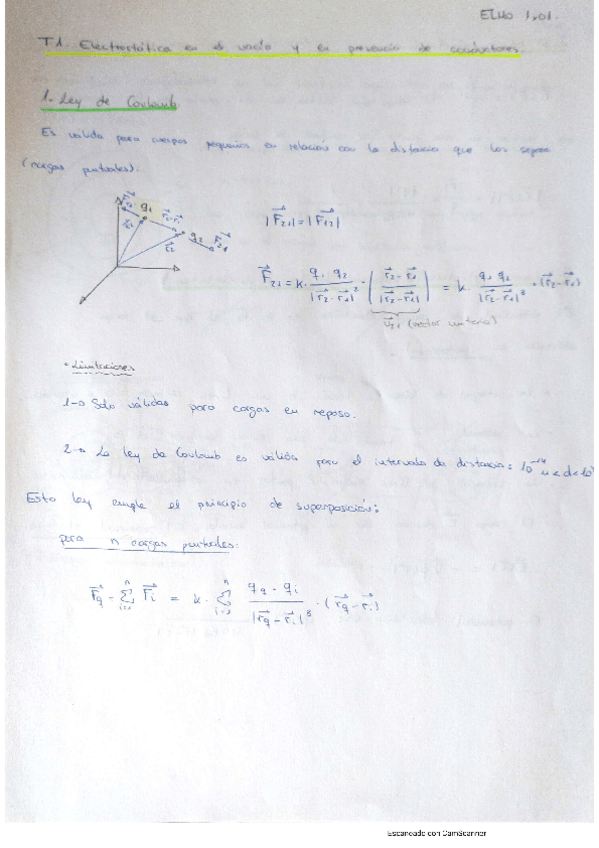 ELMO 1.01.
T1. Electrostática en el vacío y en presencia de conductores.
1. Ley de Coulomb
Es válida para cuerpos pequeños en relación con la distancia que los separa
(cargas puntuales).
F⃗12 q1 r⃗2-r⃗1 q2 F⃗21
r⃗1 r⃗2
|F⃗21| = |F⃗12|
F⃗21 = k · q1 q2 / |r⃗2 - r⃗1|² · (r⃗2 - r⃗1 / |r⃗2 - r⃗1|) = k · q1 q2 / |r⃗2 - r⃗1|³ · (r⃗2 - r⃗1)
u⃗21 (vector unitario)
• Limitaciones
1-> Solo válidas para cargas en reposo.
2-> La ley de Coulomb es válida para el intervalo de distancias: 10⁻¹⁴ m < d < 10
Esta ley cumple el principio de superposición:
para n cargas puntuales:
F⃗q = Σ F⃗i = k · Σ qq · qi / |r⃗q - r⃗i|³ · (r⃗q - r⃗i)
Escaneado con CamScanner